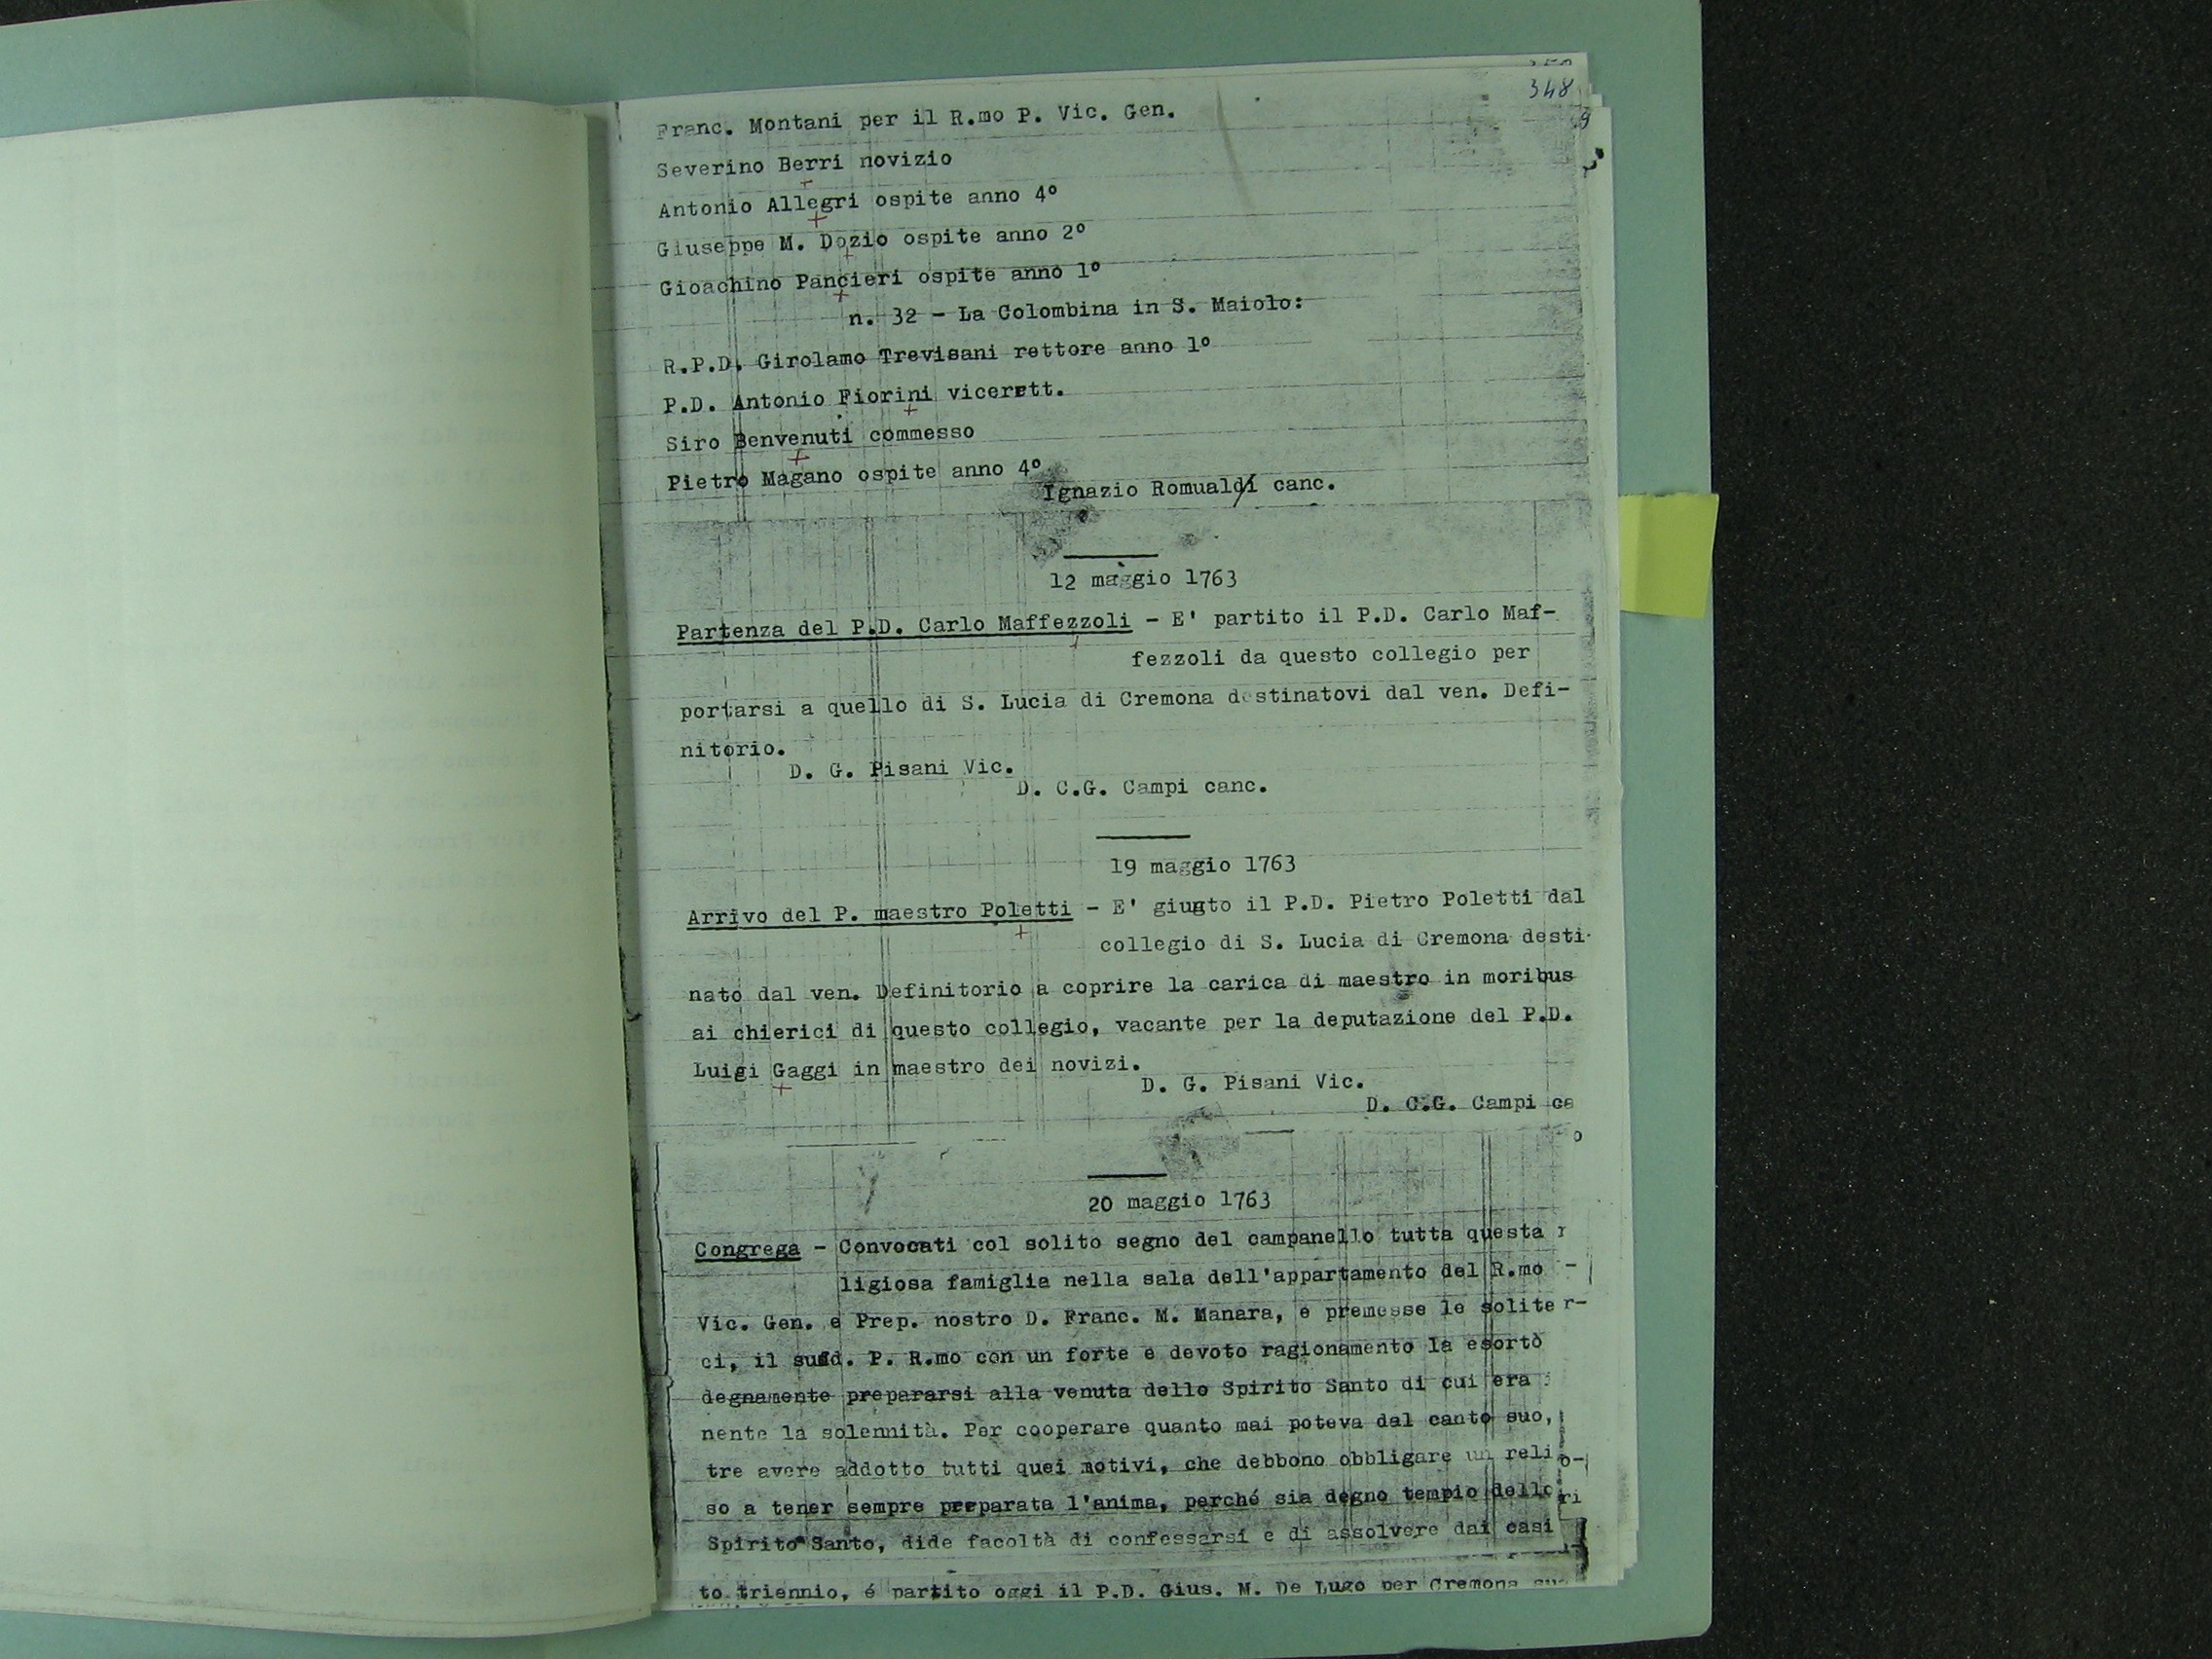 348
Franc. Montani per il R.mo P. Vic. Gen.
Severino Berri novizio
Antonio Allegri ospite anno 4°
Giuseppe M. Dozio ospite anno 2°
Gioachino Pancieri ospite anno 1°
n. 32 - La Colombina in S. Maiolo:
R.P.D. Girolamo Trevisani rettore anno 1°
P.D. Antonio Fiorini vicerett.
Siro Benvenuti commesso
Pietro Magano ospite anno 4°
Ignazio Romualdi canc.
12 maggio 1763
Partenza del P.D. Carlo Maffezzoli - E' partito il P.D. Carlo Maf-
fezzoli da questo collegio per
portarsi a quello di S. Lucia di Cremona destinatovi dal ven. Defi-
nitorio.
D. G. Pisani Vic.
D. C.G. Campi canc.
19 maggio 1763
Arrivo del P. maestro Poletti - E' giunto il P.D. Pietro Poletti dal
collegio di S. Lucia di Cremona desti-
nato dal ven. Definitorio a coprire la carica di maestro in moribus
ai chierici di questo collegio, vacante per la deputazione del P.D.
Luigi Gaggi in maestro dei novizi.
D. G. Pisani Vic.
D. C.G. Campi ca
20 maggio 1763
Congrega - Convocati col solito segno del campanello tutta questa r
ligiosa famiglia nella sala dell'appartamento del R.mo -
Vic. Gen. e Prep. nostro D. Franc. M. Manara, e premesse le solite r-
ci, il sudd. P. R.mo con un forte e devoto ragionamento la esortò
degnamente prepararsi alla venuta dello Spirito Santo di cui era
nente la solennità. Per cooperare quanto mai poteva dal canto suo,
tre avere addotto tutti quei motivi, che debbono obbligare un reli o-
so a tener sempre preparata l'anima, perché sia degno tempio dello ri
Spirito Santo, dide facoltà di confessarsi e di assolvere dai casi
to triennio, é partito oggi il P.D. Gius. M. De Lugo per Cremona